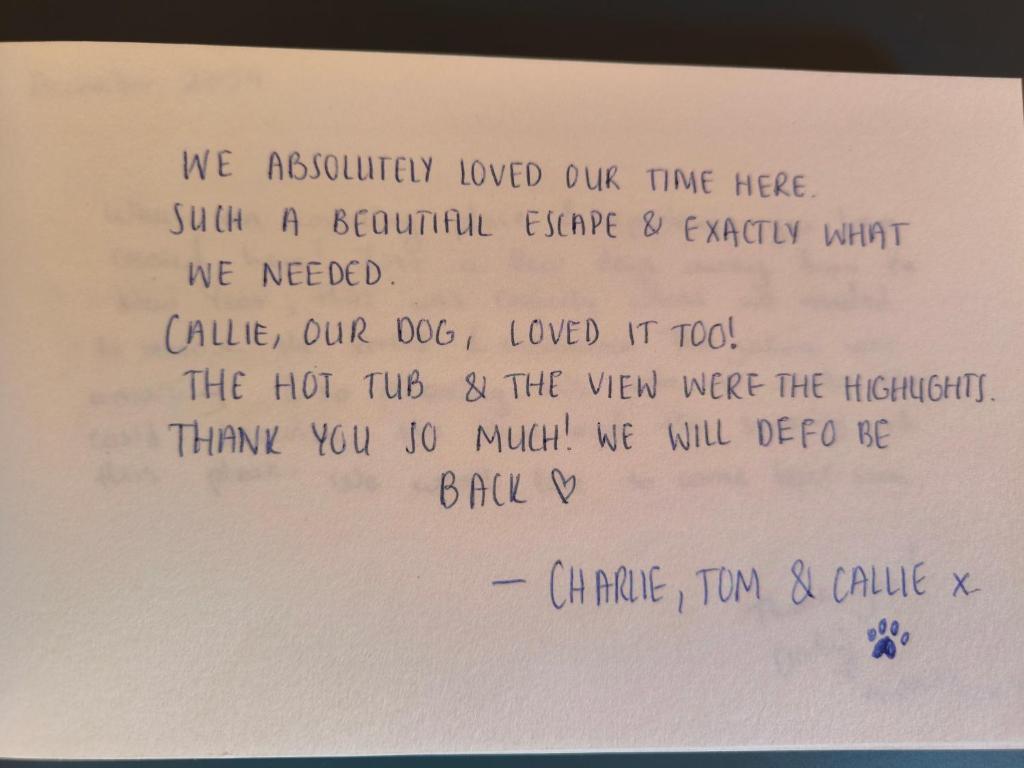 WE ABSOLUTELY LOVED OUR TIME HERE.
SUCH A BEAUTIFUL ESCAPE & EXACTLY WHAT
WE NEEDED.
CALLIE, OUR DOG, LOVED IT TOO!
THE HOT TUB & THE VIEW WERE THE HIGHLIGHTS.
THANK YOU SO MUCH! WE WILL DEFO BE
BACK ♡
— CHARLIE, TOM & CALLIE x